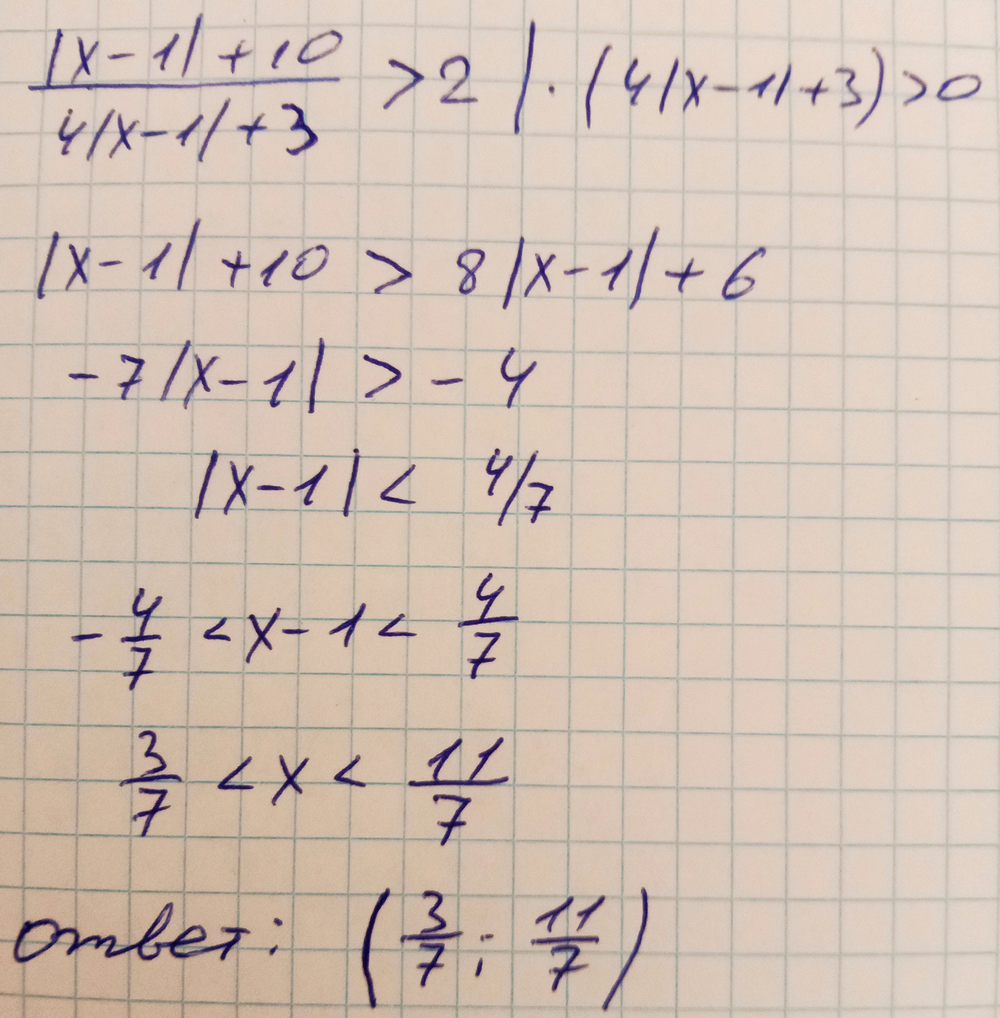 |x-1|+10
4|x-1|+3 >2 | · (4|x-1|+3)>0
|x-1|+10 > 8|x-1|+6
-7|x-1| > -4
|x-1| < 4/7
-4/7 < x-1 < 4/7
3/7 < x < 11/7
ответ: (3/7 ; 11/7)